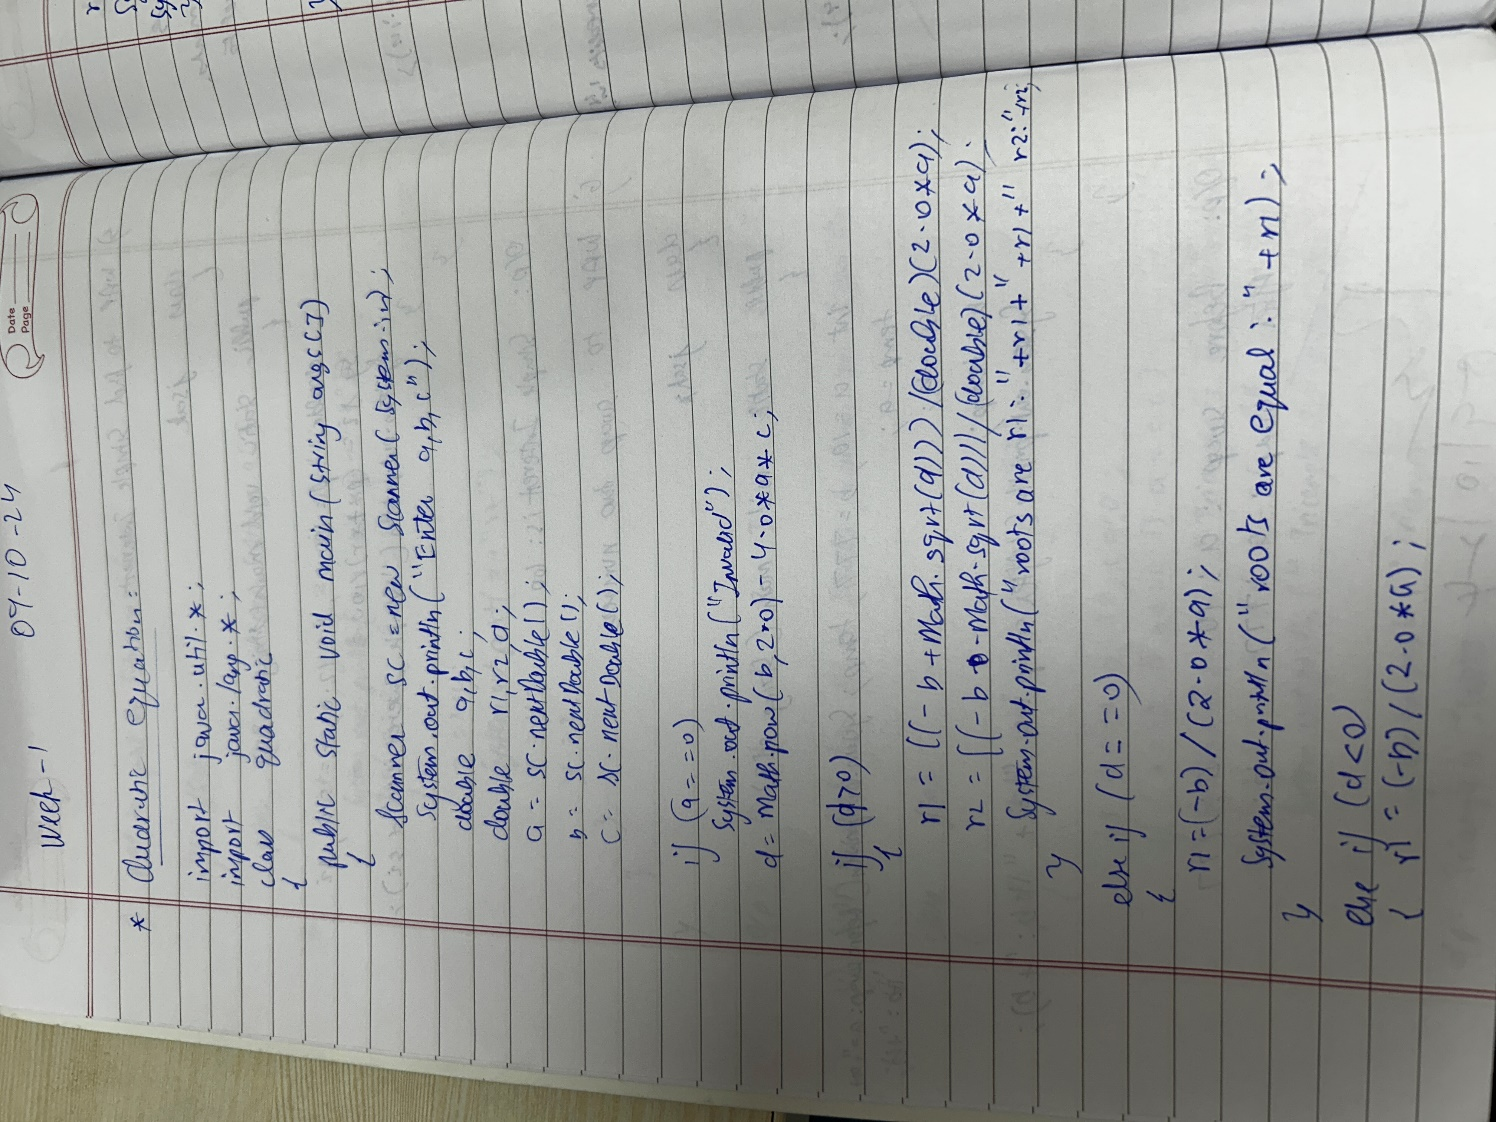 Date
Page
Week-1 09-10-24
* Quadratic equation:
import java.util.*;
import java.lang.*;
class quadratic
{
public static void main(String args[])
{
Scanner sc = new Scanner(System.in);
System.out.println("Enter a,b,c");
double a,b,c;
double r1,r2,d;
a = sc.nextDouble();
b = sc.nextDouble();
c = sc.nextDouble();
if (a==0)
System.out.println("Invalid");
d = Math.pow(b,2.0)-4.0*a*c;
if (d>0)
{
r1 = ((-b+Math.sqrt(d)))/(double)(2.0*a);
r2 = ((-b-Math.sqrt(d)))/(double)(2.0*a);
System.out.println("roots are r1:"+r1+" "+r1+" r2:"+r2;
}
else if (d==0)
{
r1=(-b)/(2.0*a);
System.out.println("roots are equal:"+r1);
}
else if (d<0)
{ r1=(-b)/(2.0*a);